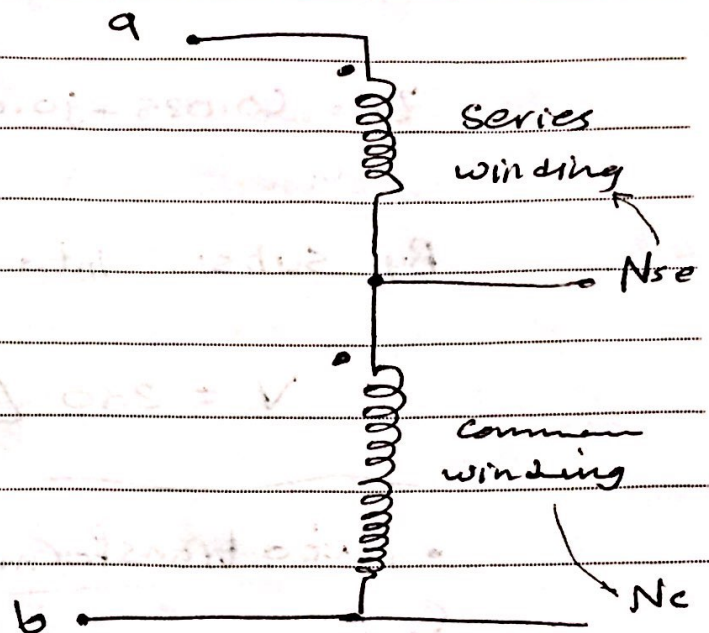 a
series
winding
Nse
common
winding
Nc
b